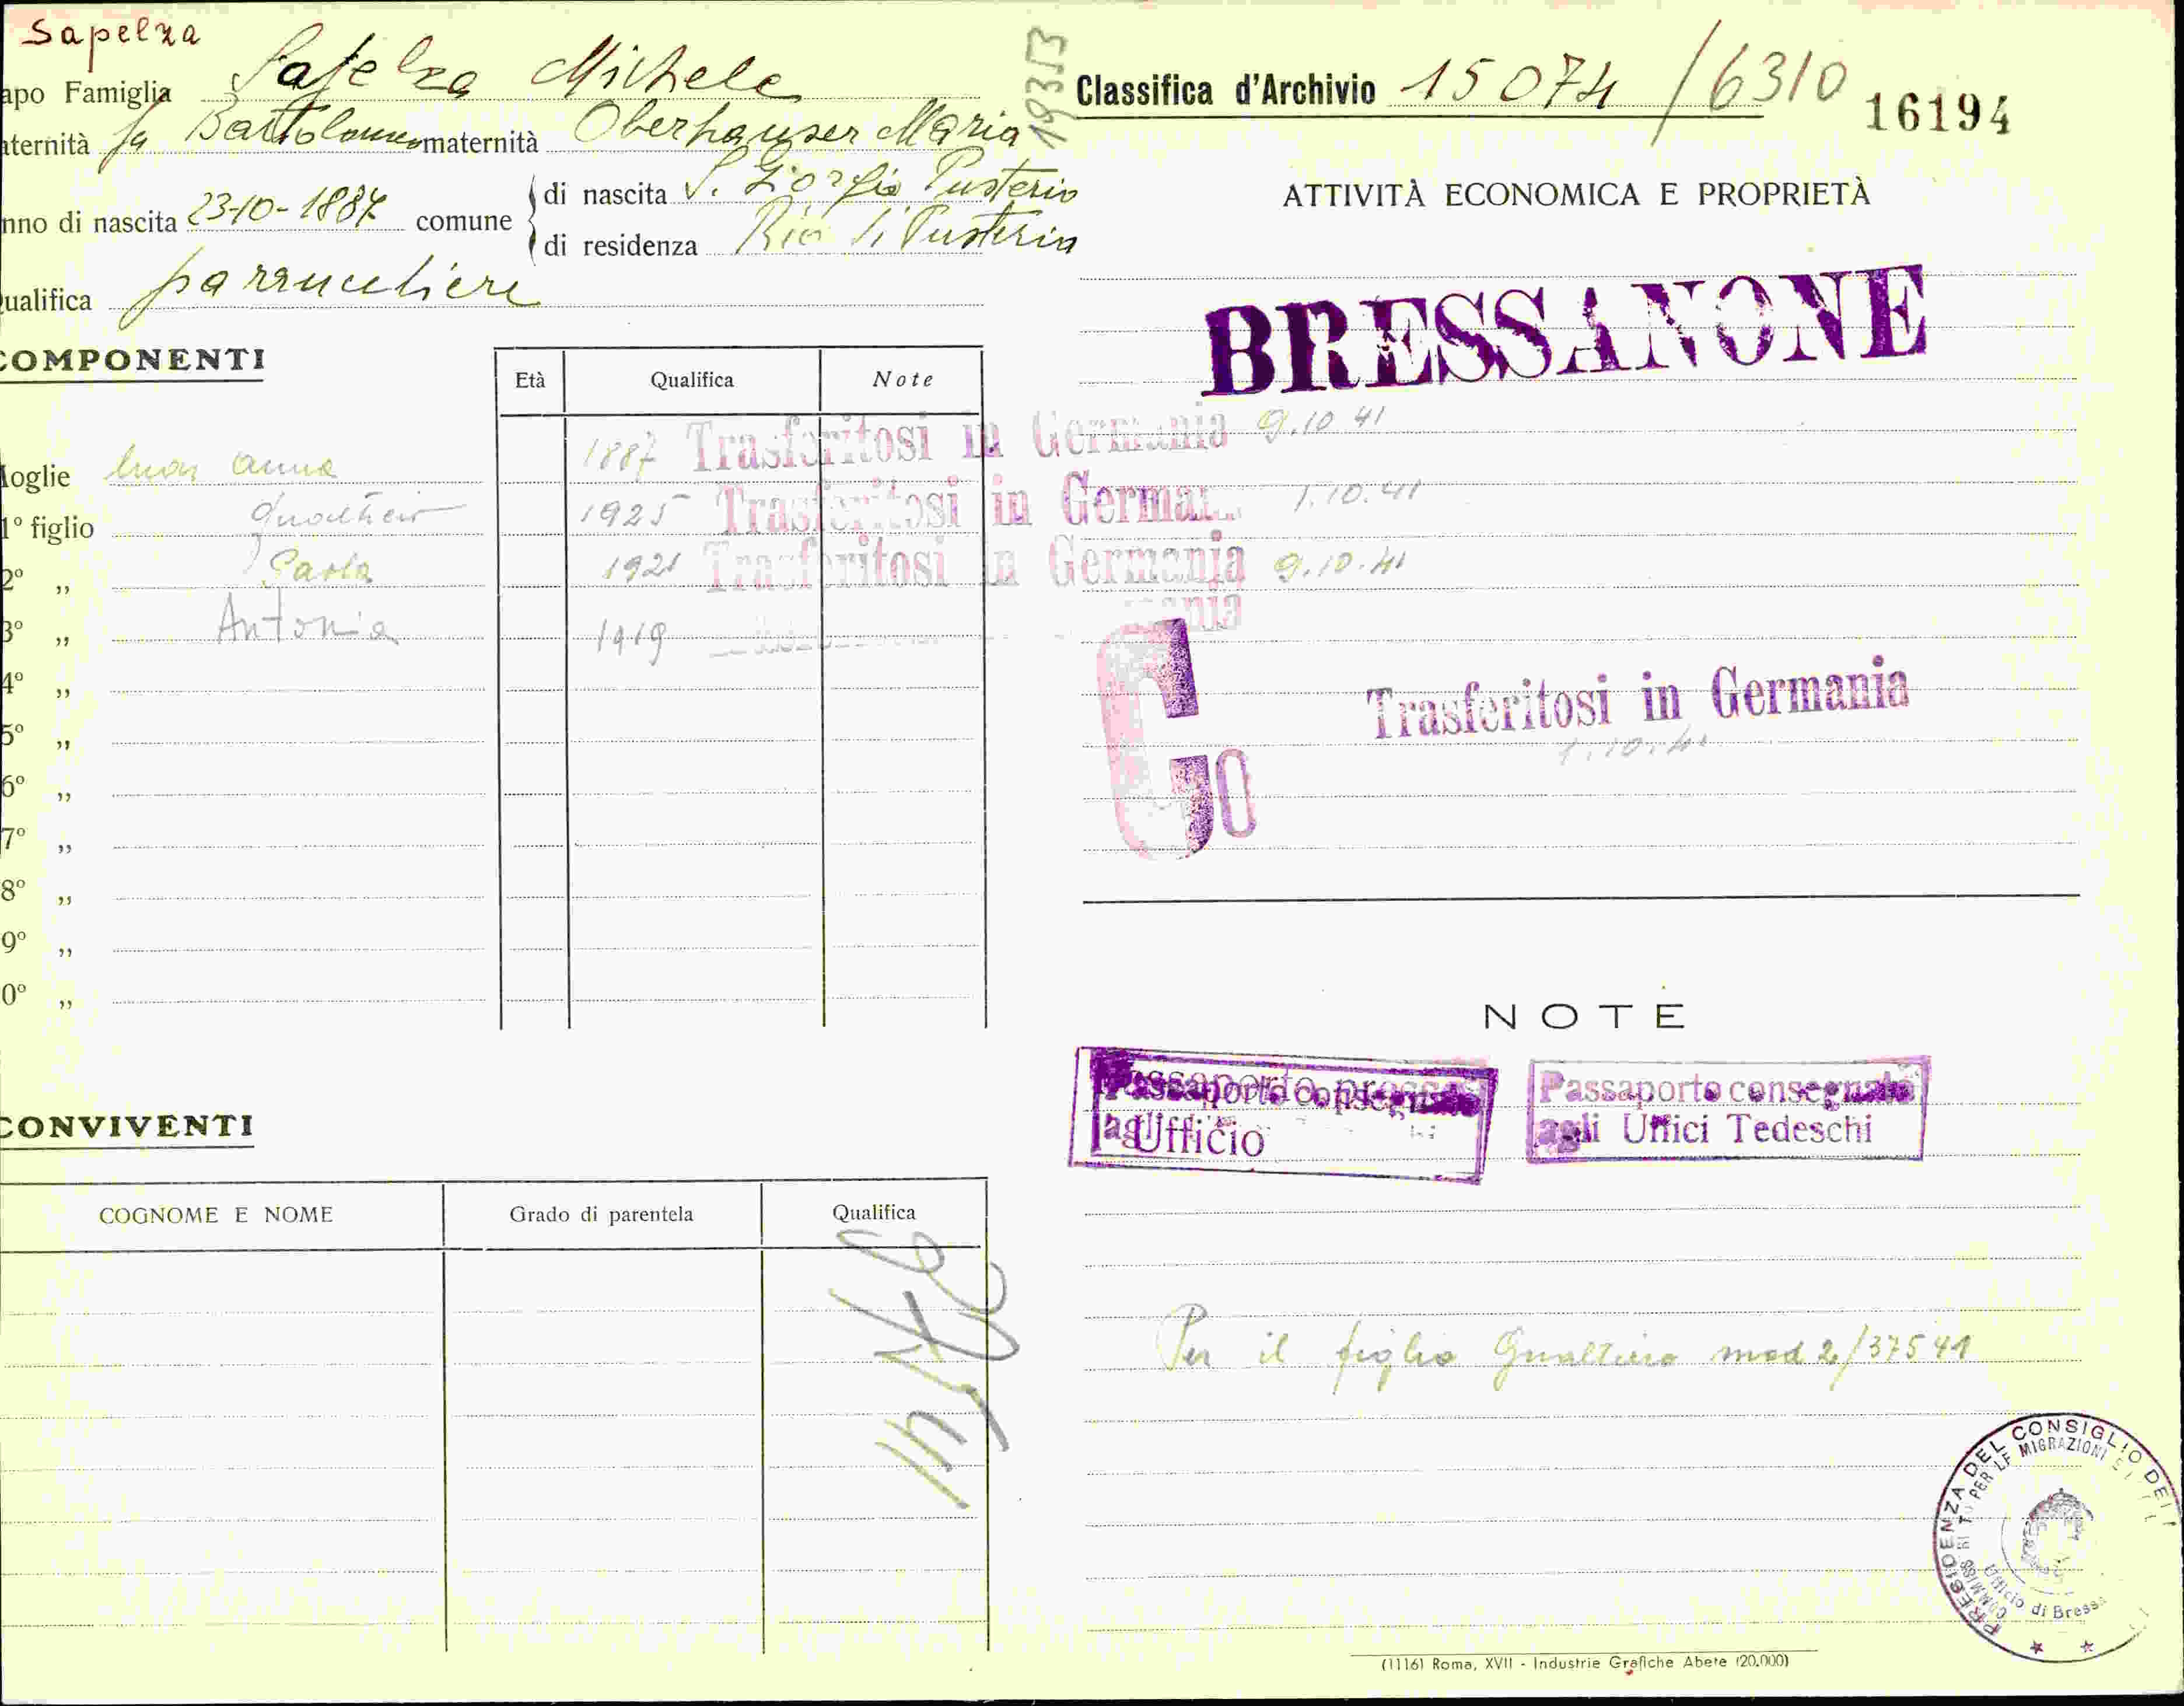 Sapelza
apo Famiglia Sapelza Michele
aternità fu Bartolomeo maternità Oberhauser Maria
19353
nno di nascita 23-10-1887 comune
di nascita S. Giorgio Pusteria
di residenza Rio di Pusteria
ualifica parrucchiere
COMPONENTI
Età Qualifica Note
Moglie Anna 1887 Trasferitosi in Germania 9.10.41
1° figlio Gualtiero 1925 Trasferitosi in German 1.10.41
2° „ Paola 1921 Trasferitosi in Germania 9.10.41
3° „ Antonia 1919 nia
4° „
5° „
6° „
7° „
8° „
9° „
0° „
CONVIVENTI
COGNOME E NOME Grado di parentela Qualifica
Classifica d'Archivio 15074 / 6310 16194
ATTIVITÀ ECONOMICA E PROPRIETÀ
BRESSANONE
G
Trasferitosi in Germania
1.10.41
NOTE
Passaporto presso
Ufficio
Passaporto consegnato
agli Uffici Tedeschi
Per il figlio Gualtiero mod 2/37541
PRESIDENZA DEL CONSIGLIO DEI
PER LE MIGRAZIONI
Ufficio di Bressa
(1116) Roma, XVII - Industrie Grafiche Abete (20.000)